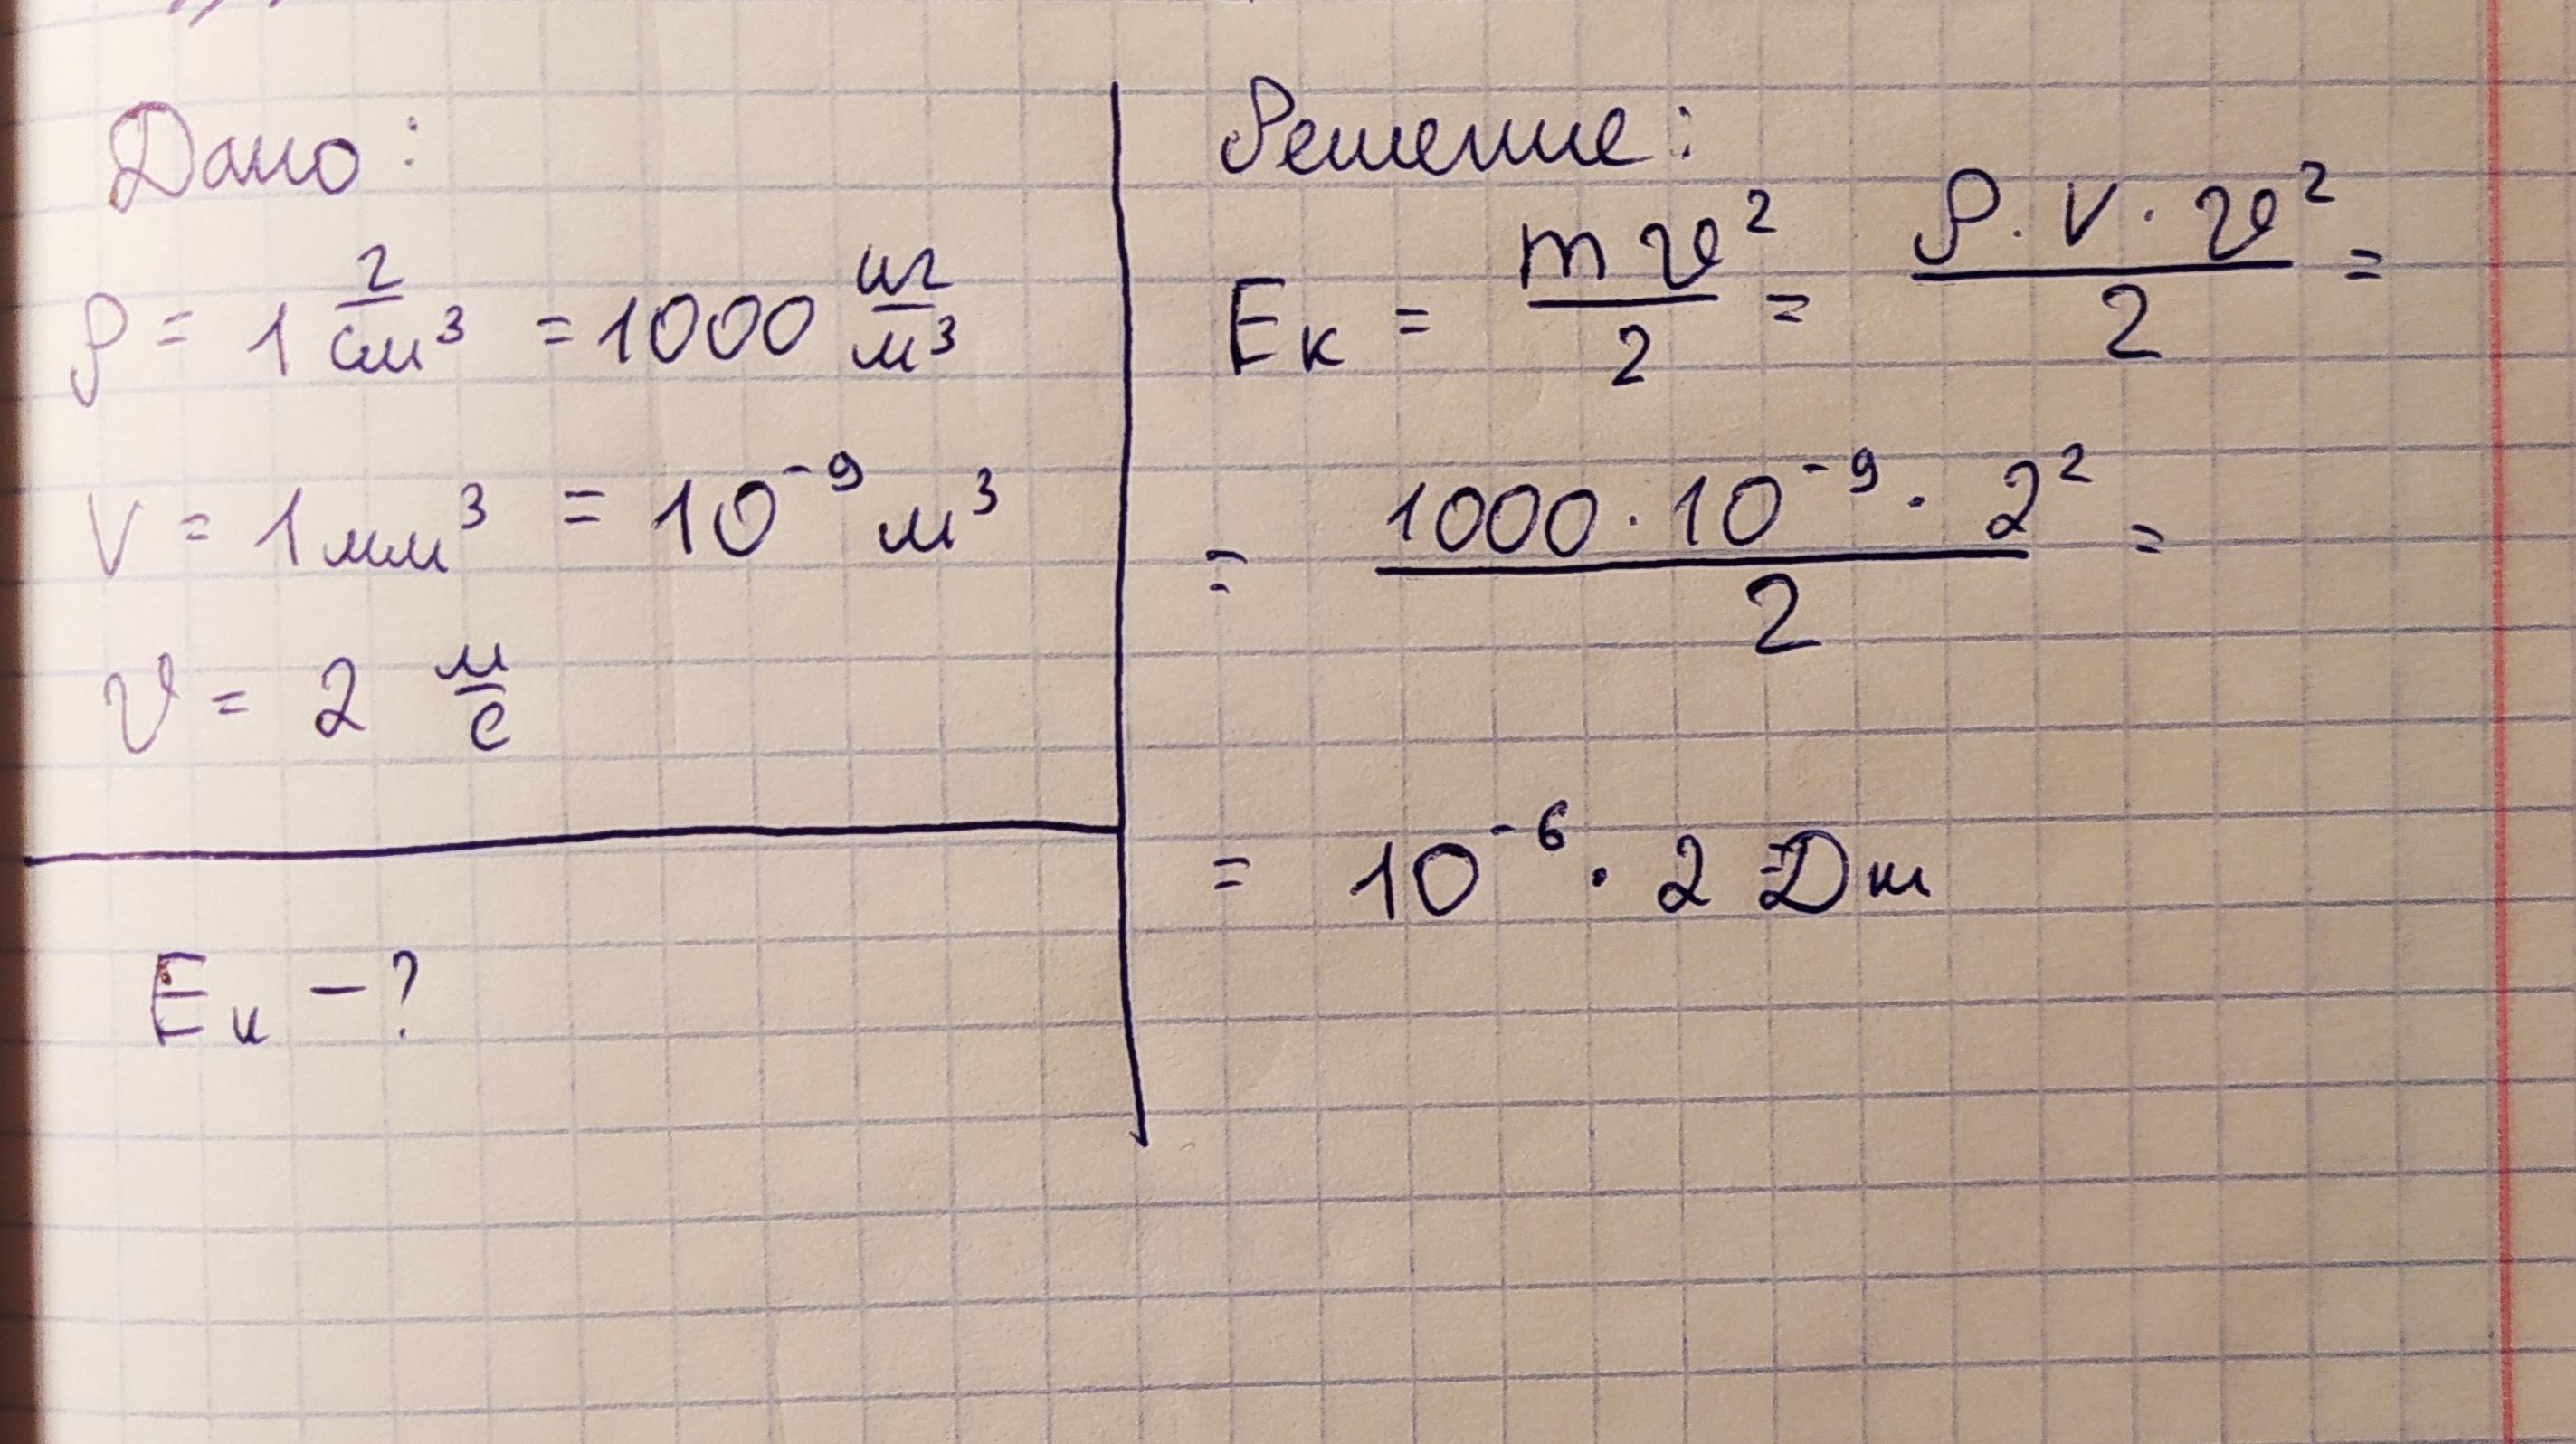 Дано:
ρ = 1 г/см³ = 1000 кг/м³
V = 1 мм³ = 10⁻⁹ м³
v = 2 м/с
Eк - ?
Решение:
Eк = mv²/2 = ρ · V · v²/2 =
= 1000 · 10⁻⁹ · 2²/2 =
= 10⁻⁶ · 2 Дж